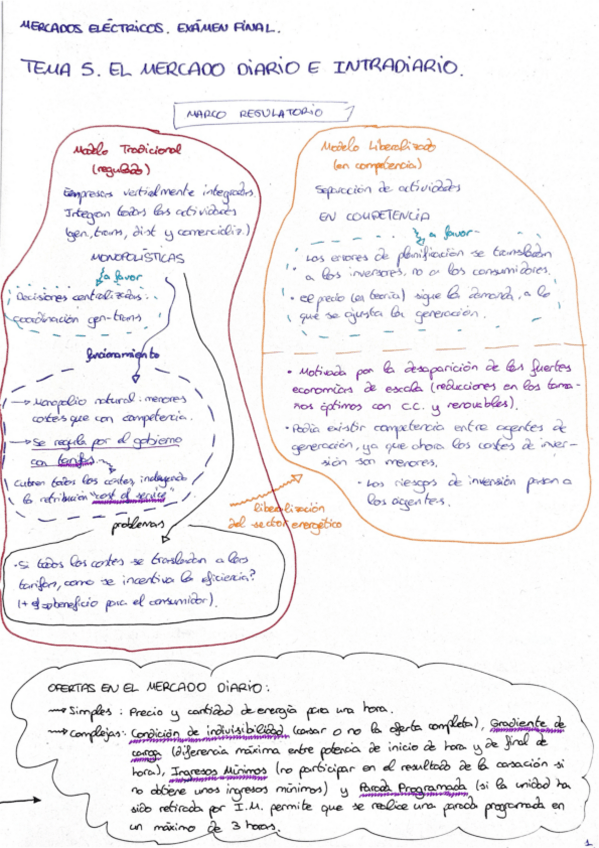 MERCADOS ELÉCTRICOS. EXÁMEN FINAL.
TEMA 5. EL MERCADO DIARIO E INTRADIARIO.
MARCO REGULATORIO
Modelo Tradicional
(regulado)
Empresas verticalmente integradas.
Integran todas las actividades
(gen, trans, dist y comercializ.)
MONOPOLÍSTICAS
a favor
Decisiones centralizadas:
coordinación gen-trans
funcionamiento
→ Monopolio natural: menores
costes que con competencia.
→ Se regula por el gobierno
con tarifas
cubren todos los costes, incluyendo
la retribución "cost of service"
problemas
· Si todos los costes se trasladan a las
tarifas, como se incentiva la eficiencia?
(+ el sobeneficio para el consumidor).
Modelo Liberalizado
(en competencia)
Separación de actividades
EN COMPETENCIA
a favor
· Los errores de planificación se trasladan
a los inversores, no a los consumidores.
· el precio (en teoría) sigue la demanda, a la
que se ajusta la generación.
· Motivada por la desaparición de las fuertes
economías de escala (reducciones en los tama-
ños óptimos con C.C. y renovables).
· Podía existir competencia entre agentes de
generación, ya que ahora los costes de inver-
sión son menores.
· Los riesgos de inversión pasan a
los agentes.
liberalización
del sector energético
OFERTAS EN EL MERCADO DIARIO:
→ Simples: Precio y cantidad de energía para una hora.
→ Complejas: Condición de indivisibilidad (casar o no la oferta completa), Gradiente de
carga (diferencia máxima entre potencia de inicio de hora y de final de
hora), Ingresos Mínimos (no participar en el resultado de la casación si
no obtiene unos ingresos mínimos) y Parada Programada (si la unidad ha
sido retirada por I.M. permite que se realice una parada programada en
un máximo de 3 horas.
1